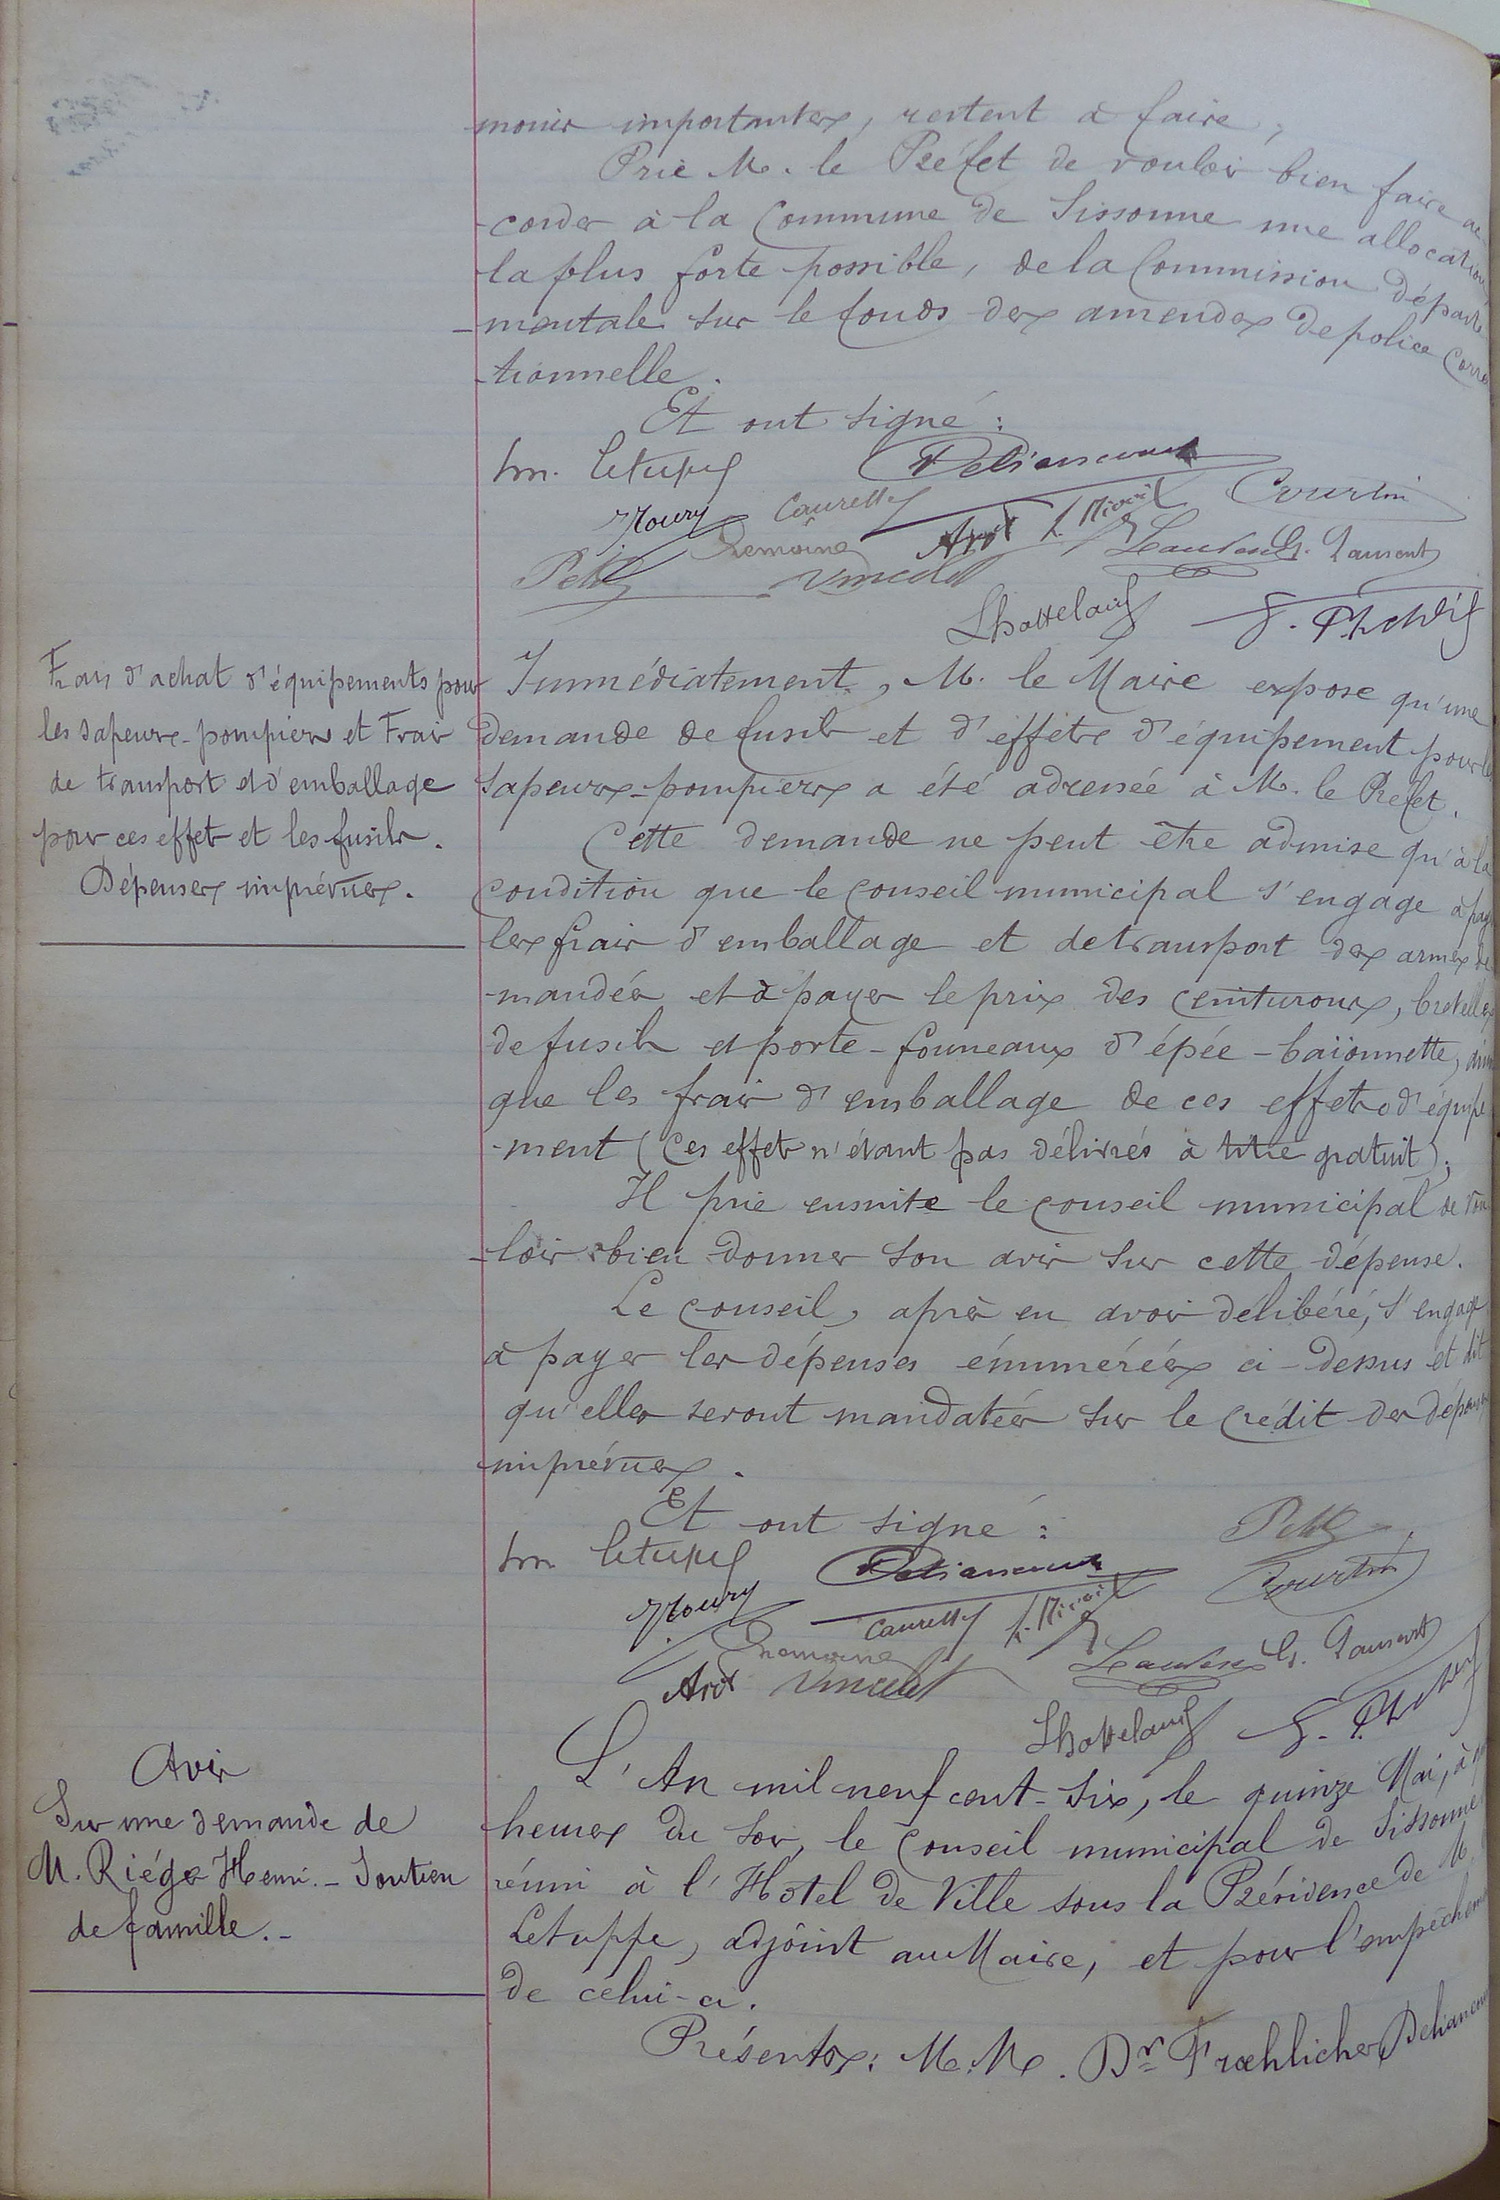 -moins importantes, restent à faire;
Prie M. le Préfet de vouloir bien faire ac
-corder à la Commune de Sissonne une allocation
la plus forte possible, de la Commission départe
-mentale sur le fonds des amendes de police corre
-tionnelle.
Et ont signé:
Letupp
Deliancourt
Courtin
Moury
Caurette
L. Mivoix
Lemoine
G. Laurent
Petit
Vincent
Frais d'achat d'équipements pour
les sapeurs-pompiers et Frais
de transport et d'emballage
pour ces effets et les fusils.
Dépenses imprévues.
Immédiatement, M. le Maire expose qu'une
demande de fusils et d'effets d'équipement pour les
sapeurs-pompiers a été adressée à M. le Préfet.
Cette demande ne peut être admise qu'à la
condition que le Conseil municipal s'engage à pay
les frais d'emballage et de transport des armes de
-mandées et à payer le prix des ceinturons, bretelles
de fusils et porte-fourreaux d'épée-baïonnette, ainsi
que les frais d'emballage de ces effets d'équipe
-ment (ces effets n'étant pas délivrés à titre gratuit);
Il prie ensuite le Conseil municipal de vou
-loir bien donner son avis sur cette dépense.
Le Conseil, après en avoir délibéré, s'engage
à payer les dépenses énumérées ci-dessus et dit
qu'elles seront mandatées sur le crédit des dépenses
imprévues.
Et ont signé:
Petit
Letupp
Deliancourt
Courtin
Moury
Caurette
L. Mivoix
Lemoine
G. Laurent
Vincent
Avis
Sur une demande de
M. Riégé Henri. - Soutien
de famille. -
L'An mil neuf cent-six, le quinze Mai, à
heures du soir, le Conseil municipal de Sissonne
réuni à l'Hôtel de Ville sous la Présidence de M.
Letuppe, adjoint au Maire, et pour l'empêchement
de celui-ci.
Présents: M.M. Dr Frœhlicher, Deliancourt